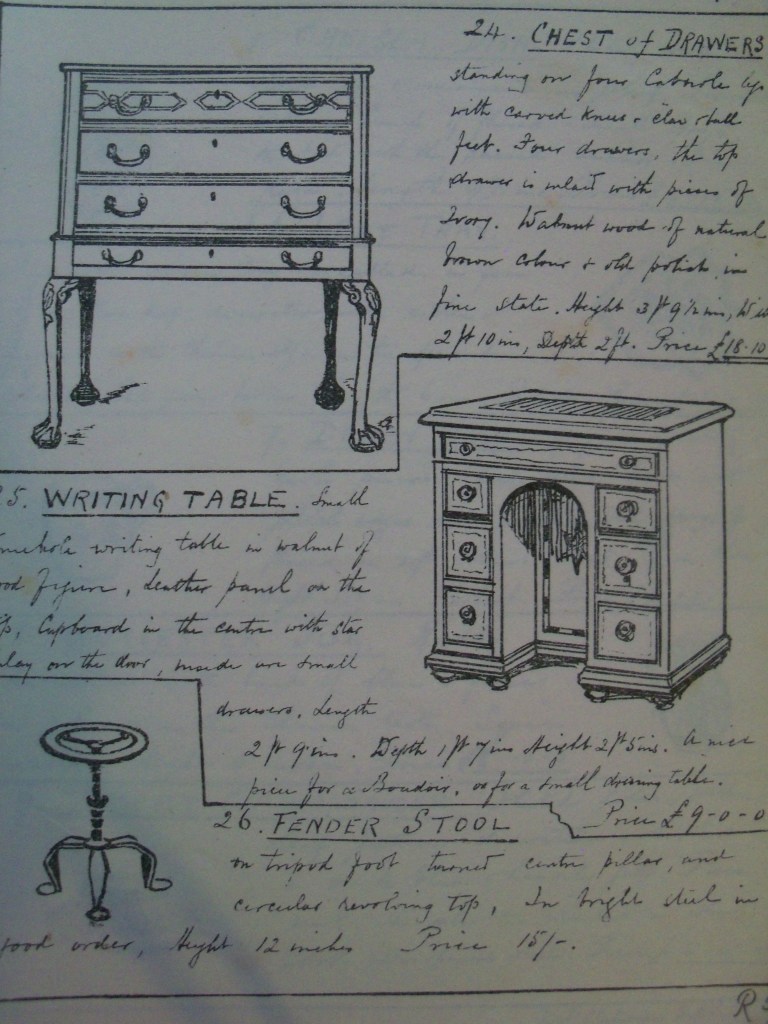 24. CHEST of DRAWERS
standing on four Cabriole legs
with carved knees & claw & ball
feet. Four drawers, the top
drawer is inlaid with pieces of
Ivory. Walnut wood of natural
brown colour & old polish in
fine state. Height 3 ft 9½ ins,
2 ft 10 ins, Depth 2 ft. Price £18.10
5. WRITING TABLE. Small
writing table in walnut of
figure, Leather panel on the
Cupboard in the centre with star
on the door, inside are small
drawers. Length
2 ft 9 ins. Depth 1 ft 7 ins Height 2 ft 5 ins. A nice
piece for a Boudoir, or for a small dressing table.
Price £9-0-0
26. FENDER STOOL
on tripod foot turned centre pillar, and
circular revolving top, In bright steel in
good order, Height 12 inches Price 15/-.